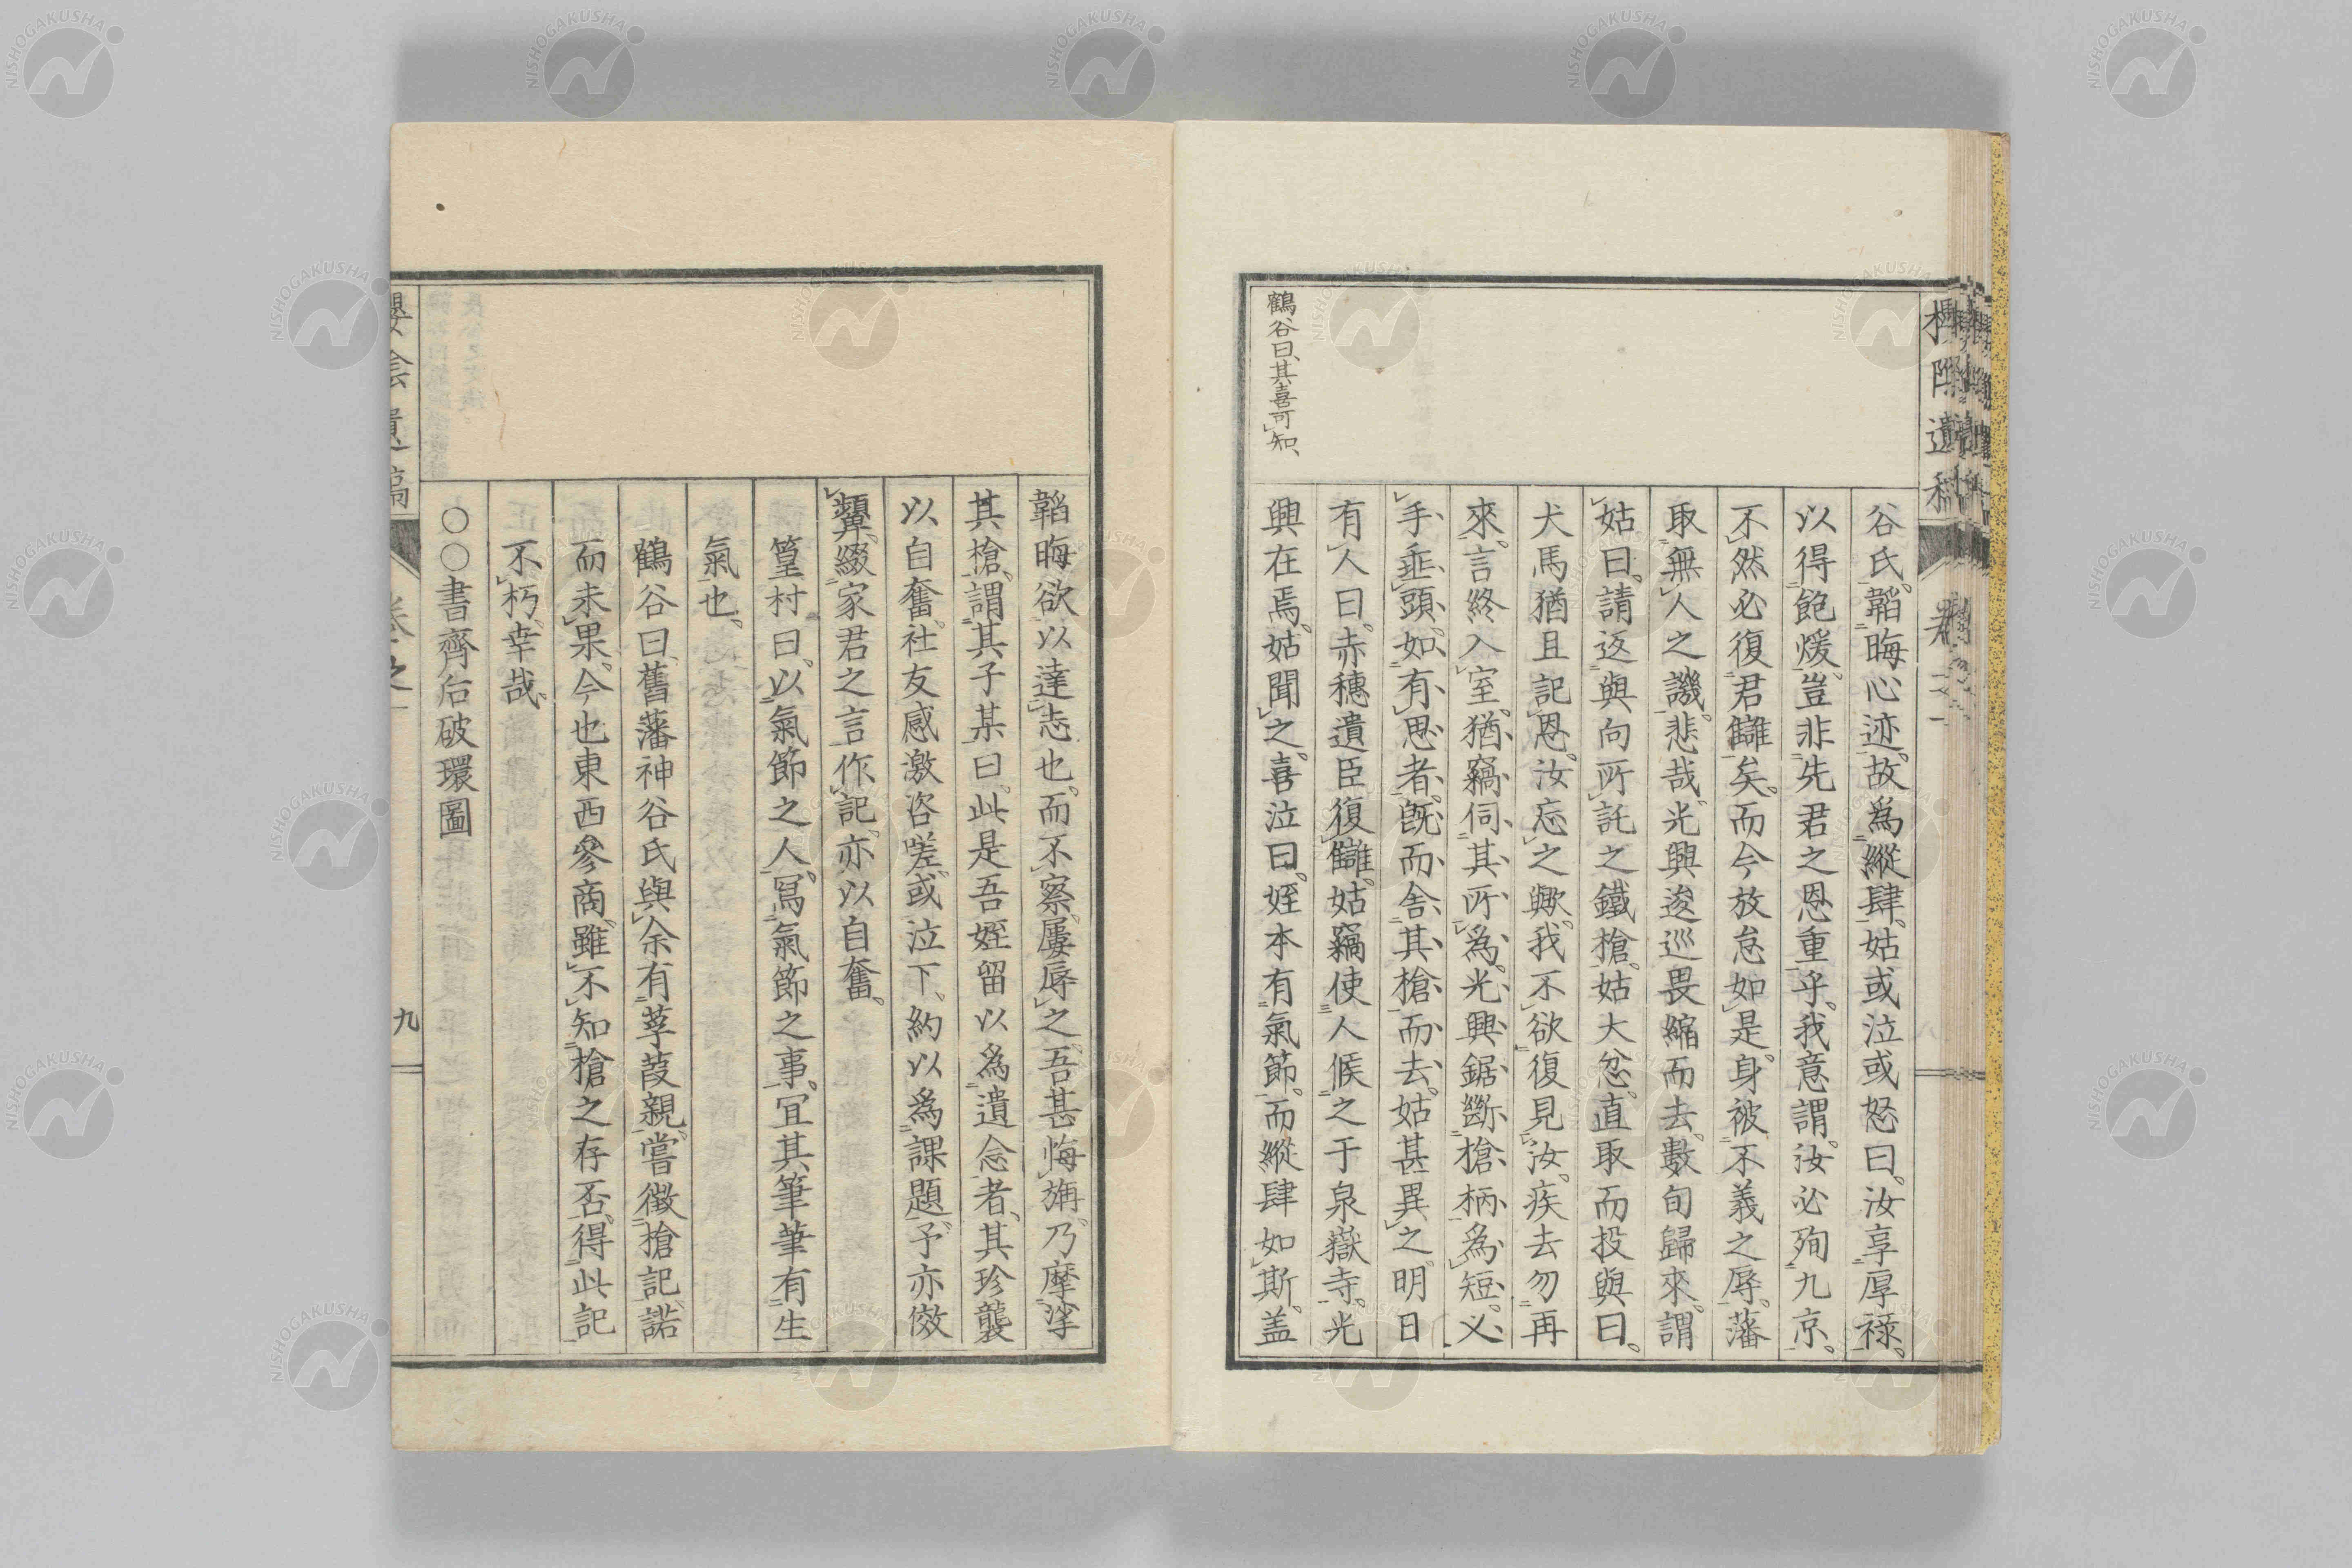 谷氏。韜晦心迹。故爲縱肆。姑或泣或怒曰。汝享厚祿。
以得飽煖。豈非先君之恩重乎。我意謂。汝必殉九京。
不然必復君讎矣。而今放怠如是。身被不義之辱。藩
取無人之譏。悲哉。光興逡巡畏縮而去。數旬歸來。謂
姑曰。請返與向所託之鐵槍。姑大忿。直取而投與曰。
犬馬猶且記恩。汝忘之歟。我不欲復見汝。疾去勿再
來。言終入室。猶竊伺其所爲。光興鋸斷槍柄爲短。乂
手垂頭。如有思者。既而舍其槍而去。姑甚異之。明日
有人曰。赤穗遺臣復讎。姑竊使人候之于泉嶽寺。光
興在焉。姑聞之。喜泣曰。姪本有氣節。而縱肆如斯。盖
鶴谷曰、其喜可知、
韜晦欲以達志也。而不察。屢辱之。吾甚悔旃。乃摩挲
其槍。謂其子某曰。此是吾姪留以爲遺念者。其珍襲
以自奮。社友感激咨嗟。或泣下、約以爲課題。予亦傚
顰。綴家君之言作記。亦以自奮。
篁村曰。以氣節之人。冩氣節之事。冝其筆筆有生
氣也。
鶴谷曰、舊藩神谷氏與余有莩葭親。嘗徵槍記。諾
而未果。今也東西參商。雖不知槍之存否。得此記
不朽。幸哉、
〇〇書齊后破環圖
九